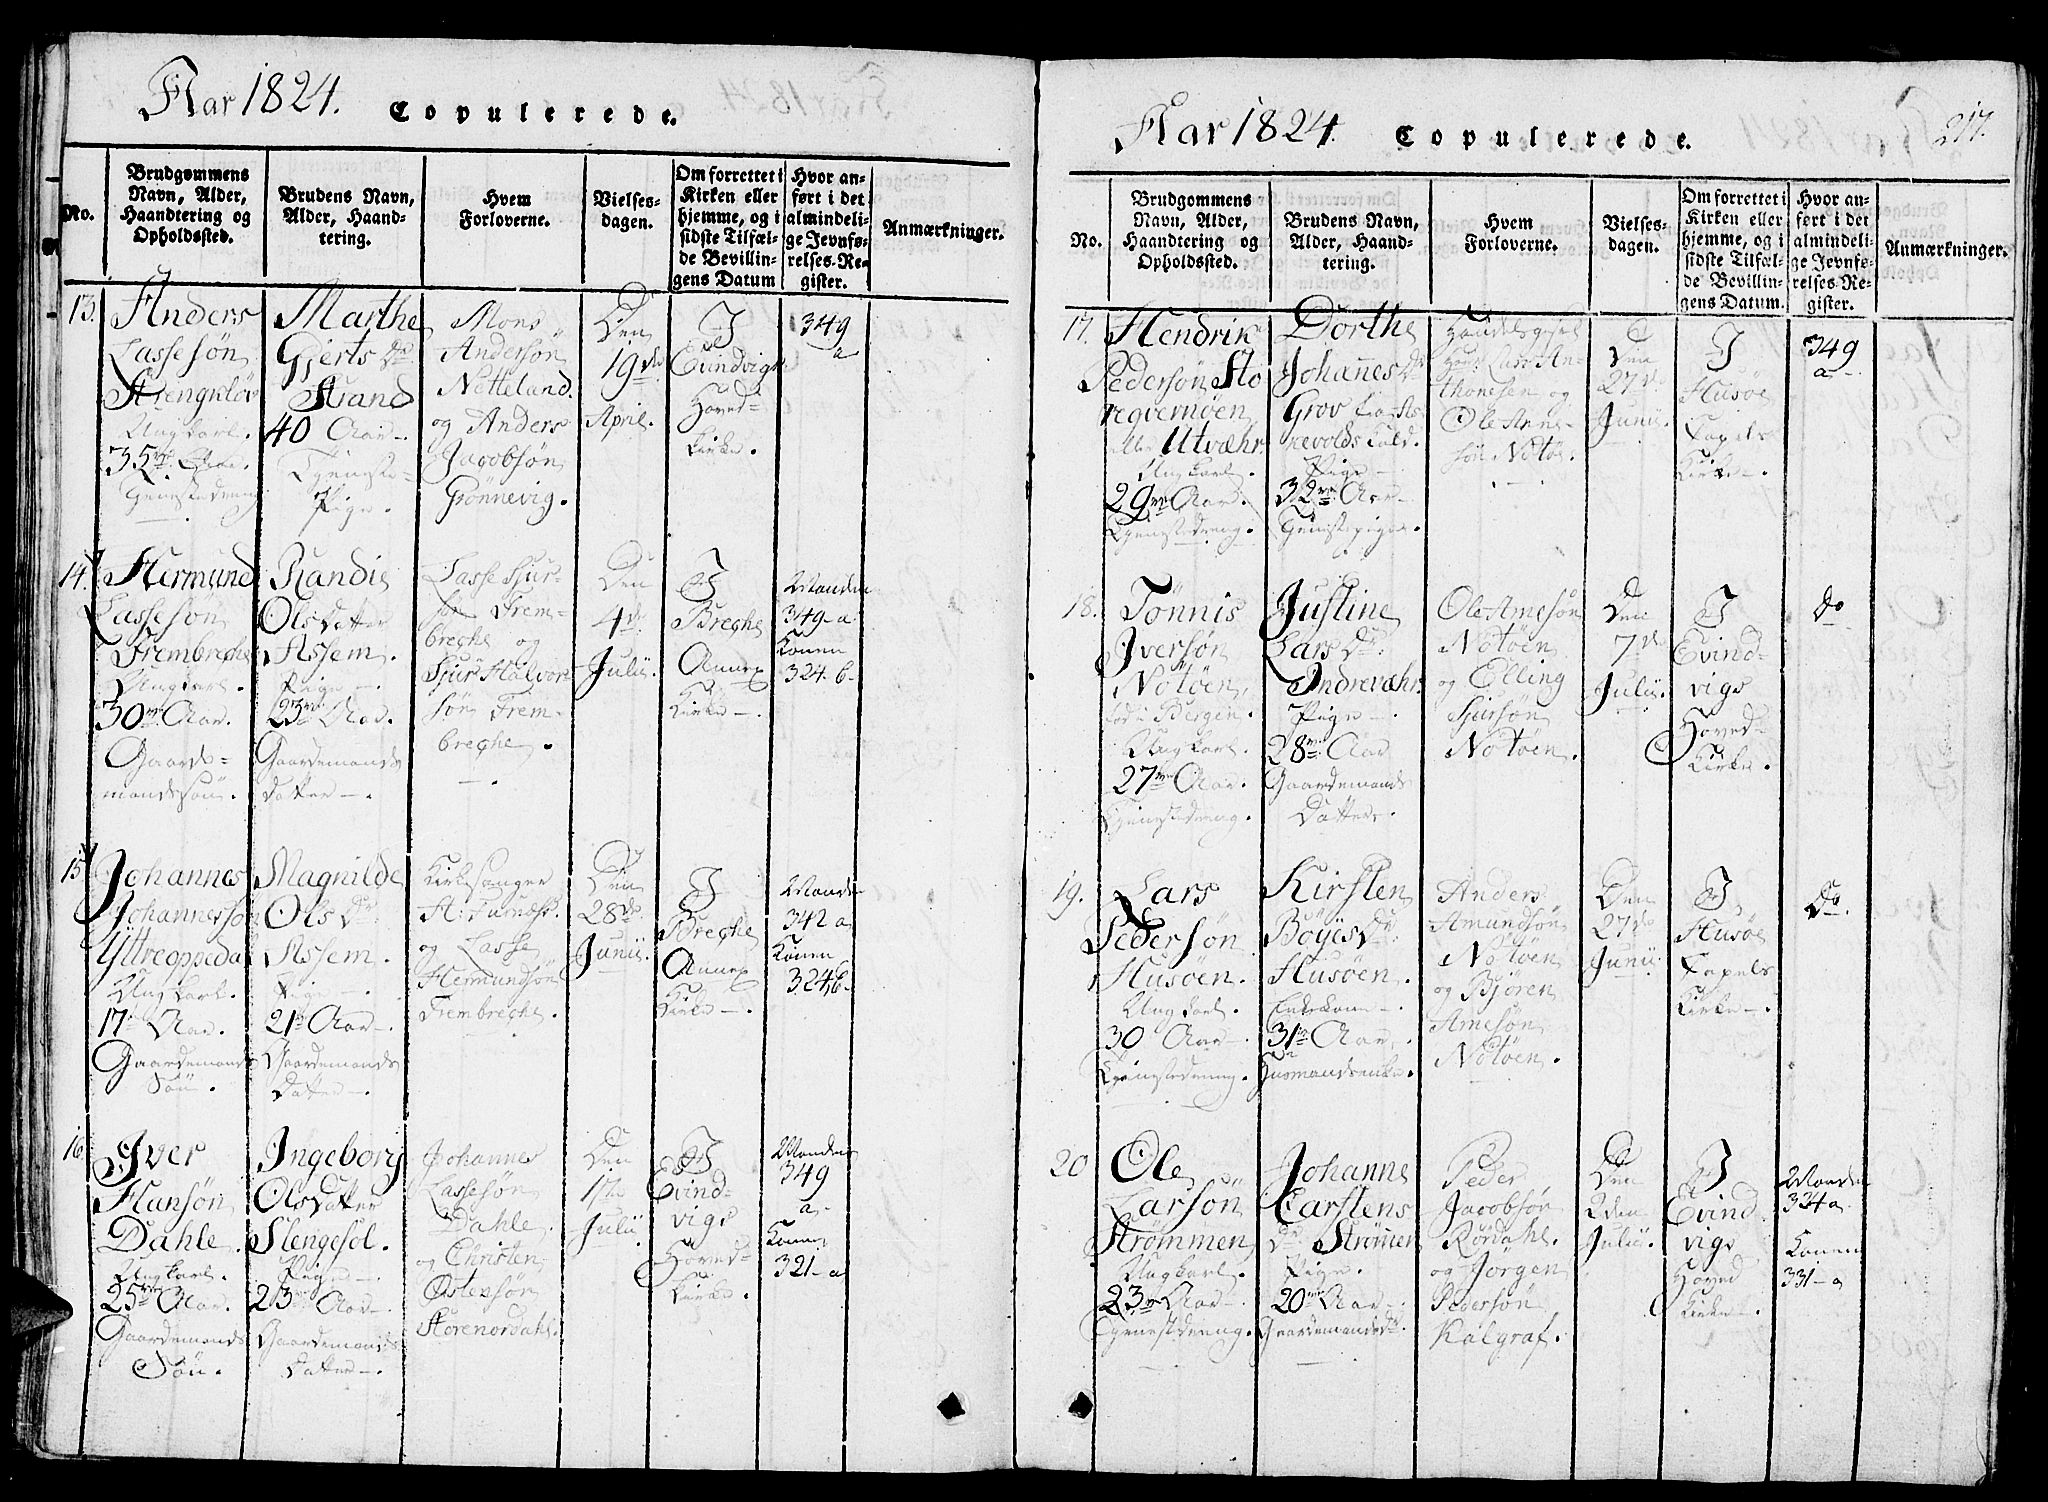 Aar 1824. Copulerede.
No.
Brudgommens
Navn, Alder,
Haandtering og
Opholdssted.
Brudens Navn,
Alder, Haand-
tering.
Hvem
Forloverne.
Vielses-
dagen.
Om forrettet i
Kirken eller
hjemme, og i
sidste Tilfæl-
de Bevillin-
gens Datum
Hvor an-
ført i det
almindeli-
ge Jevnfø-
relses-Re-
gister.
Anmærkninger.
13.
Anders
Lassesøn
Ungkarl.
35 Aar.
Marthe
Gjerts Dr
Strand
40 Aar.
Tjeneste-
Pige.
Mons
Andersøn
Notteland.
og Anders
Jacobsøn
Grønnevig.
Den
19de
April.
I
Evindvigs
Hoved-
kirke.
349
a
14.
Hermund
Lassesøn
Frembreche
Ungkarl.
30 Aar.
Gaard-
mandssøn.
Randie
Olsdatter
Assem.
Pige.
23 Aar.
Gaardemands
datter.
Lasse Sjur-
søn Frem-
breche og
Sjur Halvor
søn Frem-
breche.
Den
4de
Julii.
I
Breche
Annex
Kirke.
Manden
349 a
Konen
324. b
15.
Johannes
Johannessøn
Yttreoppeda
Ungkarl.
17 Aar.
Gaardemands
Søn.
Magnilde
Ols Dr
Assem.
Pige.
21 Aar.
Gaardemands
Datter.
Kirkesanger
og Lasse
Hermundsøn
Frembreche.
Den
28de
Junii.
I
Breche
Annex
Kirke.
Manden
342 a
Konen
324 b
16.
Iver
Hansøn
Dahle.
Ungkarl.
25 Aar.
Gaardemands
Søn.
Ingeborg
Olsdatter
Slengesol.
Pige.
23 Aar.
Gaardemands
Datter.
Johannes
Lassesøn
Dahle.
og Christen
Østensøn
Storenordahl.
Den
Julii
I
Evind-
vigs
Hoved-
kirke.
Manden
349
a
Konen
321 a
Aar 1824. Copulerede.
217.
No.
Brudgommens
Navn, Alder,
Haandtering og
Opholdssted.
Brudens Navn,
Alder, Haand-
tering.
Hvem
Forloverne.
Vielses-
dagen.
Om forrettet i
Kirken eller
hjemme, og i
sidste Tilfæl-
de Bevillin-
gens Datum.
Hvor an-
ført i det
almindeli-
ge Jevnfø-
relses-Re-
gister.
Anmærkninger.
17.
Hendrik
Pedersøn
eller Utvæhr.
Ungkarl.
29 Aar.
Tjenestedreng.
Dorthe
Johannes Dr
Grov
Pige
32 Aar
Tjenestepige.
Lars An-
thonesen og
Ole Arne-
søn Notøe.
Den
27de
Junii.
I
Husøe
Capels
Kirke.
349
a
18.
Tønnis
Iversøn
Notøen,
Bergen.
Ungkarl.
27 Aar.
Tjenestedreng.
Justine
Lars Dr
Indrevæhr.
Pige.
28 Aar
Gaardemands
Datter.
Ole Arnesøn
Notøen
og Elling
Sjursøn
Notøen.
Den
7de
Julii.
I
Evind-
vigs
Hoved-
Kirke.
Do
19.
Lars
Pedersøn
Husøen.
Ungkarl.
30 Aar.
Tjenestedreng.
Kirsten
Bøyes Dr
Husøen.
Enkekone.
31 Aar.
Husmandsenke.
Anders
Amundsøn
Notøen
og Bjøren
Arnesøn
Notøen.
Den
27de
Junii.
I
Husøe
Capels
Kirke.
Do.
20
Ole
Larsøn
Strømmen
Ungkarl.
23 Aar.
Tjenestdreng.
Johanne
Carstens
Dr Strømen
Pige.
20 Aar.
Gaardemandsdr.
Peder
Jacobsøn
Rørdahl.
og Jørgen
Pedersøn
Kalgraf.
Den
2den
Julii.
I
Evind
vigs
Hoved
Kirke.
Manden
334 a
Konen
331 a